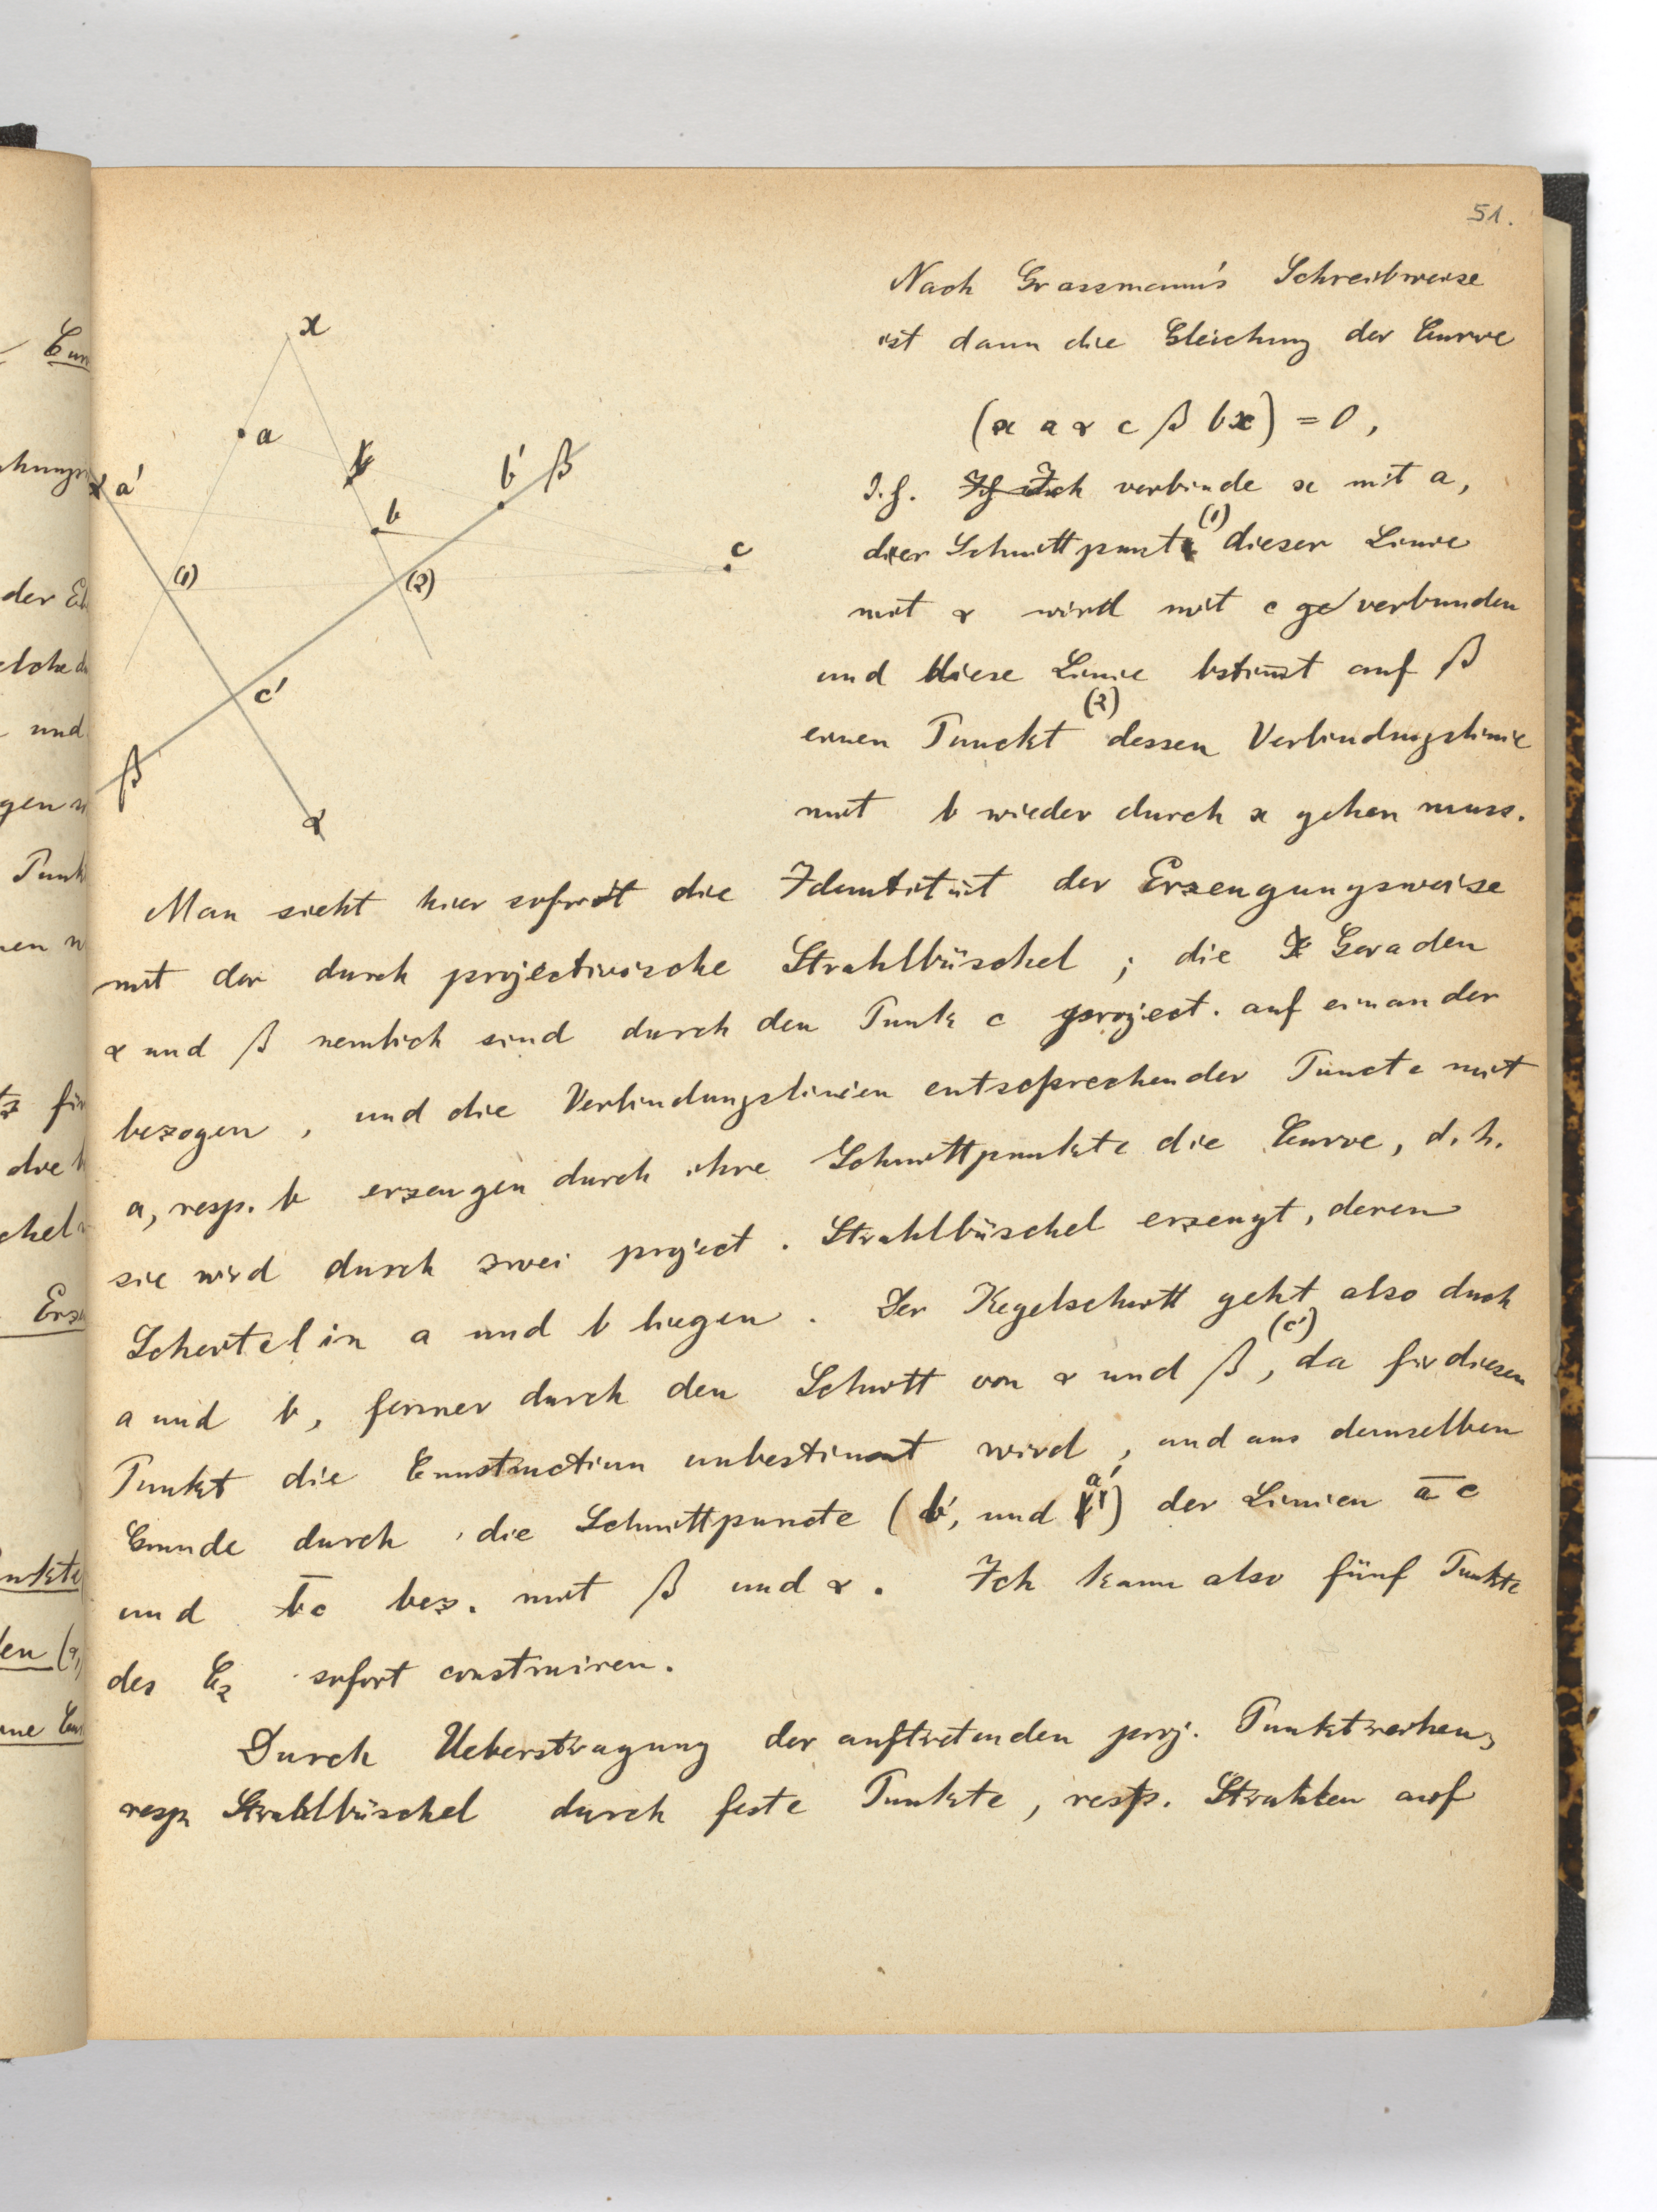 51.
Nach Grassmann's Schreibweise
ist dann die Gleichung der Curve
(x a α c β b x) = 0,
D.h. Ich verbinde x mit a,
der Schnittpunct (1) dieser Linie
mit α wird mit c verbunden
und diese Linie bstim̅t auf β
einen Punckt (2) dessen Verbindungslinie
mit b wieder durch x gehen muss.
x
a
b
b'
β
a'
α
b
c
(1)
(2)
c'
β
α
Man sieht hier sofort die Identität der Erzeugungsweise
mit der durch projectivische Strahlbüschel; die Geraden
α und β nemlich sind durch den Punk c project. auf einander
bezogen, und die Verbindungslinien entsprechender Puncte mit
a, resp. b erzeugen durch ihre Schnittpunkte die Curve, d.h.
sie wird durch zwei project. Strahlbüschel erzeugt, deren
Scheitel in a und b liegen. Der Kegelschnitt geht also durch
a und b, ferner durch den Schnitt von α und β, (c') da für diesen
Punkt die Construction unbestimmt wird, und aus demselben
Grunde durch die Schnittpuncte (b', und a') der Linien a̅c
und b̅c bez. mit β und α. Ich kann also fünf Punkte
des C₂ sofort construiren.
Durch Ueberstragung der auftretenden proj. Punktreihen,
resp. Strahlbüschel durch feste Punkte, resp. Strahlen auf